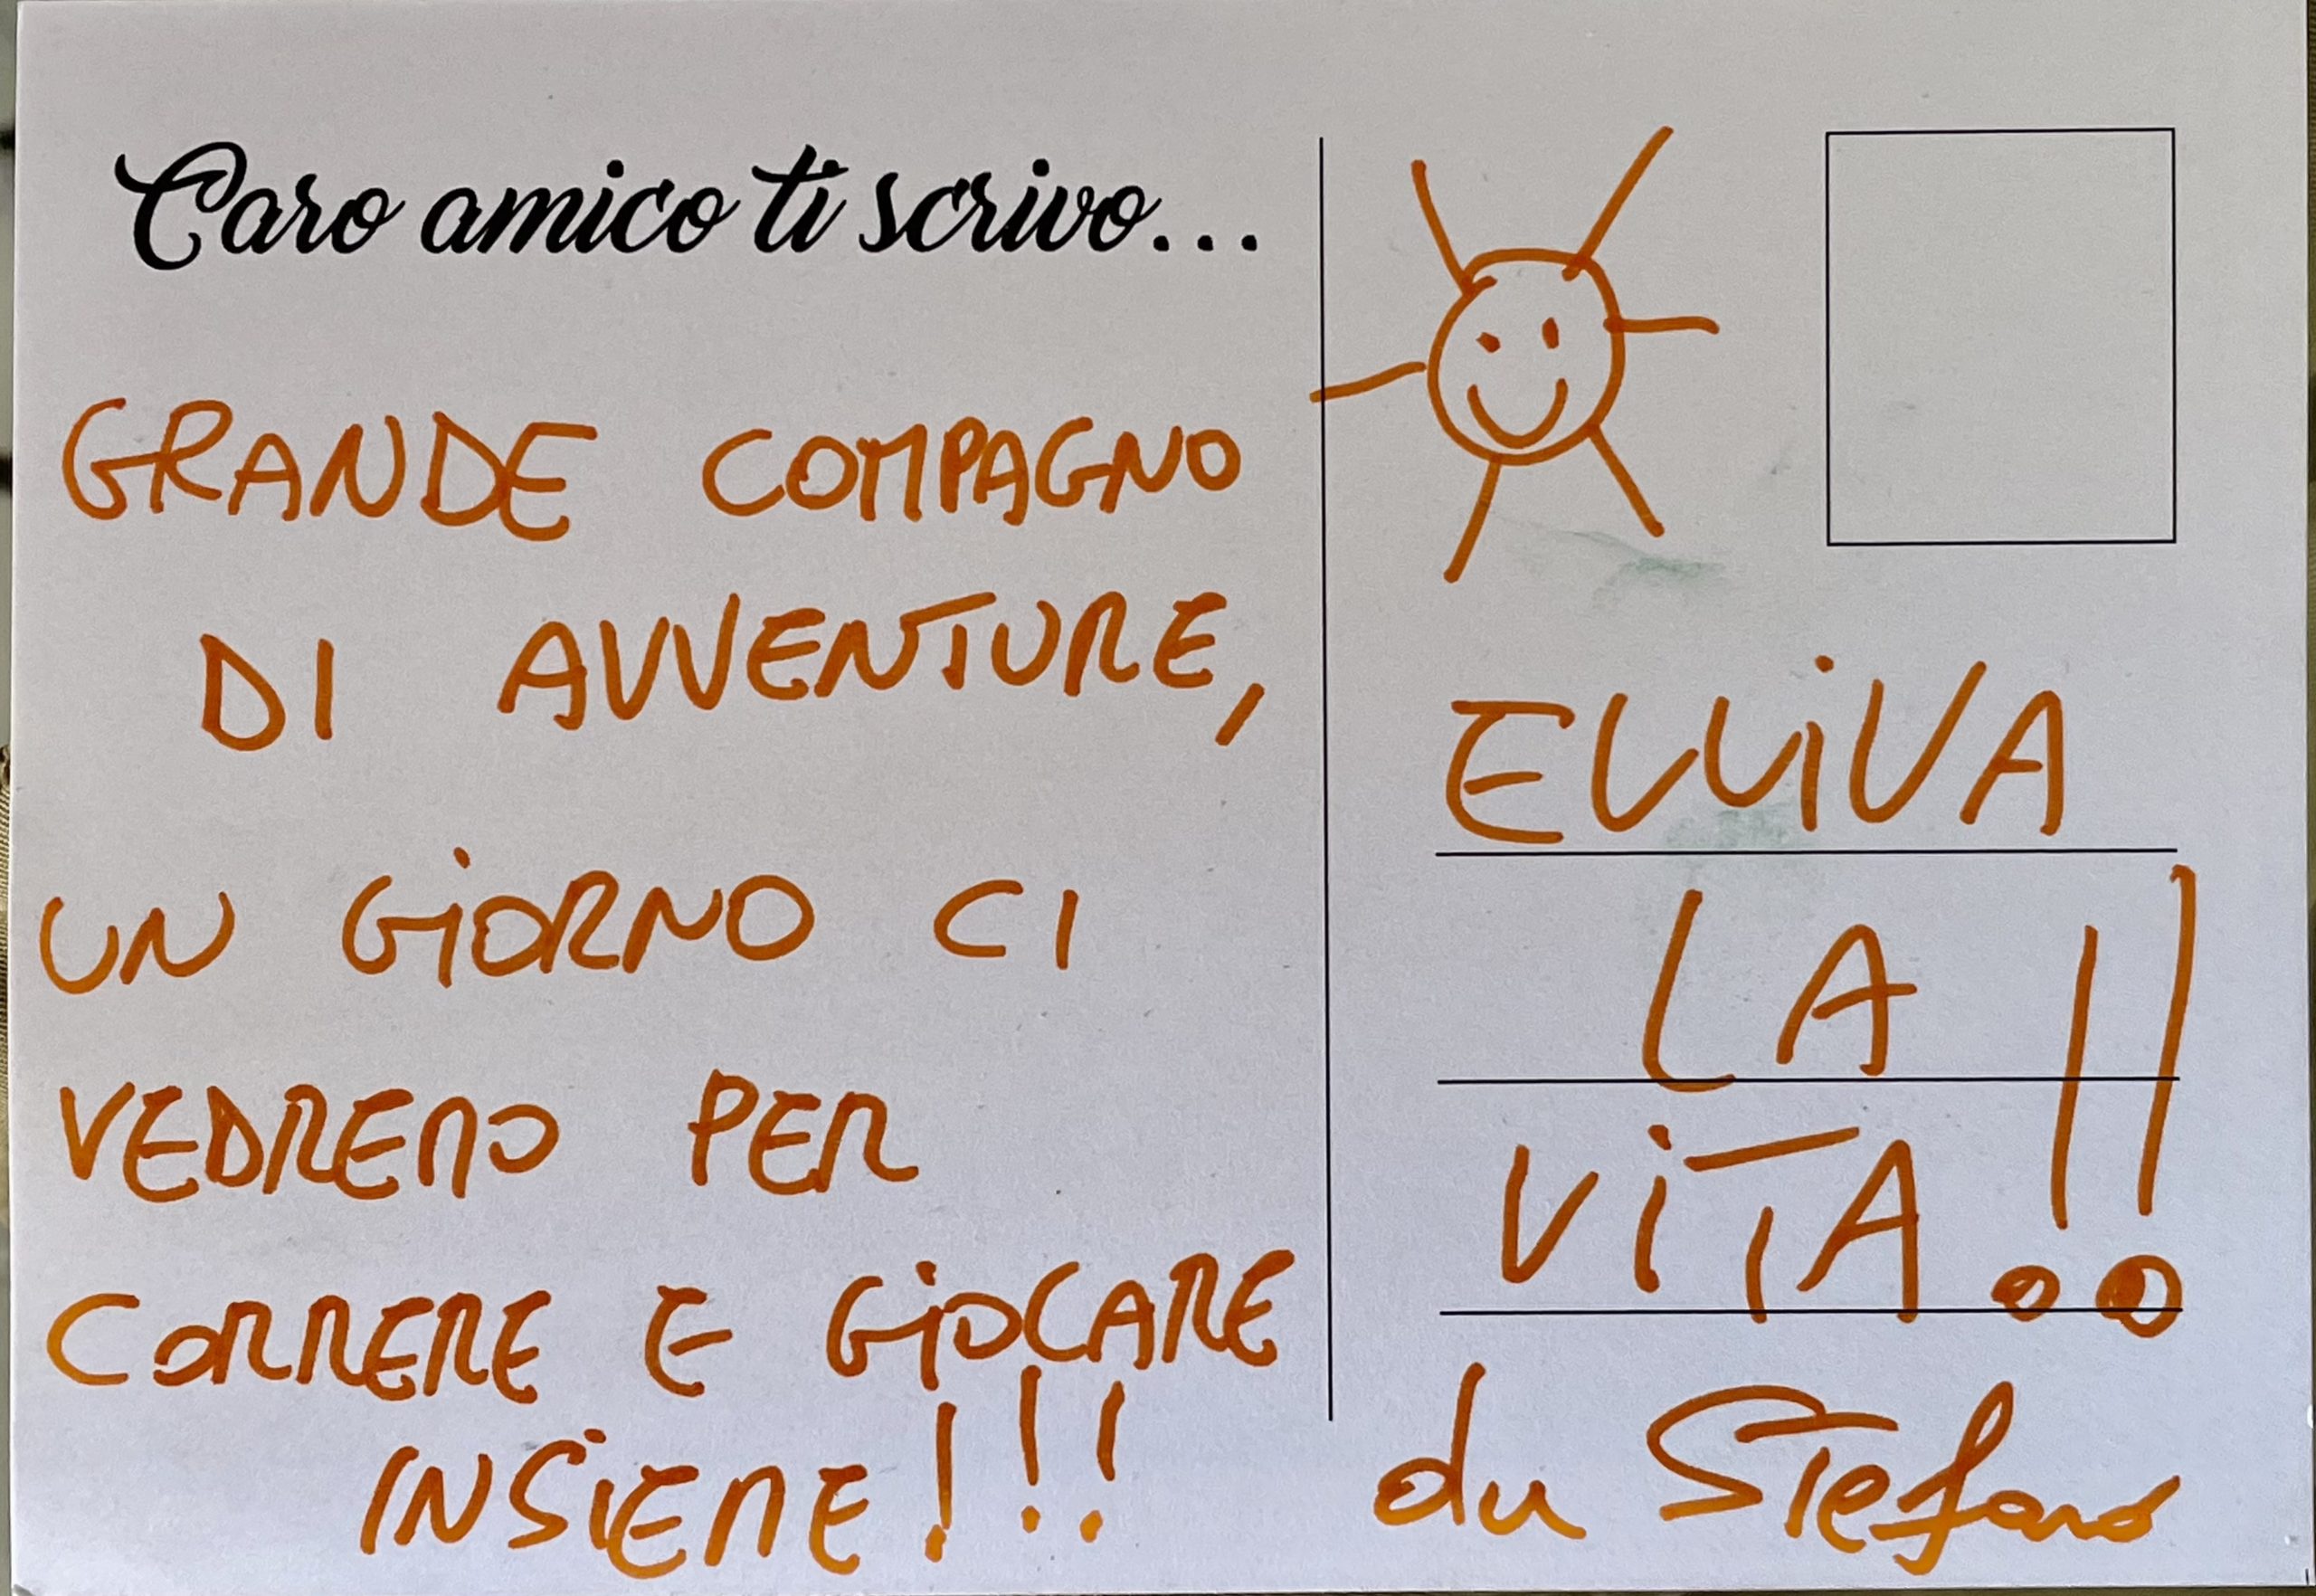 Caro amico ti scrivo...
GRANDE COMPAGNO
DI AVVENTURE,
UN GiORNO CI
VEDREMO PER
CORRERE E GiOCARE
INSiEME!!!
EVViVA
LA
ViTA!!
du Stefano